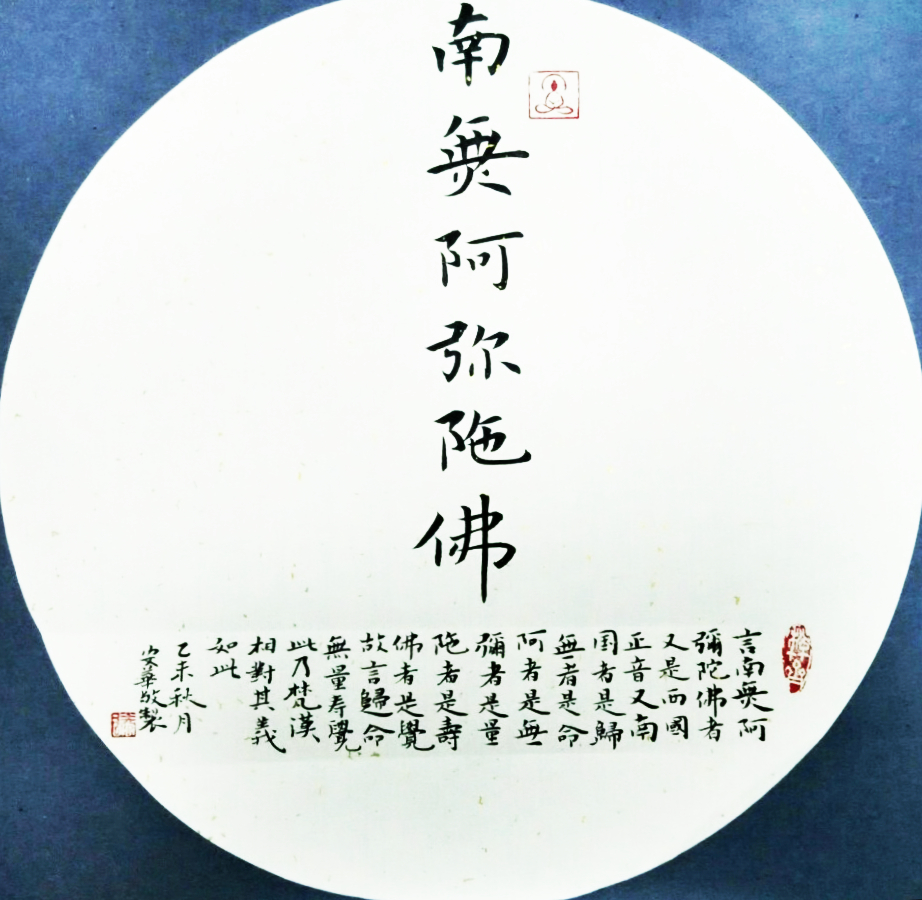 南無阿弥陁佛
言南無阿
彌陀佛者
又是而國
正音又南
国者是歸
無者是命
阿者是無
彌者是量
陁者是壽
佛者是覺
故言歸命
無量寿覺
此乃梵漢
相對其義
如此
乙未秋月
華敬製